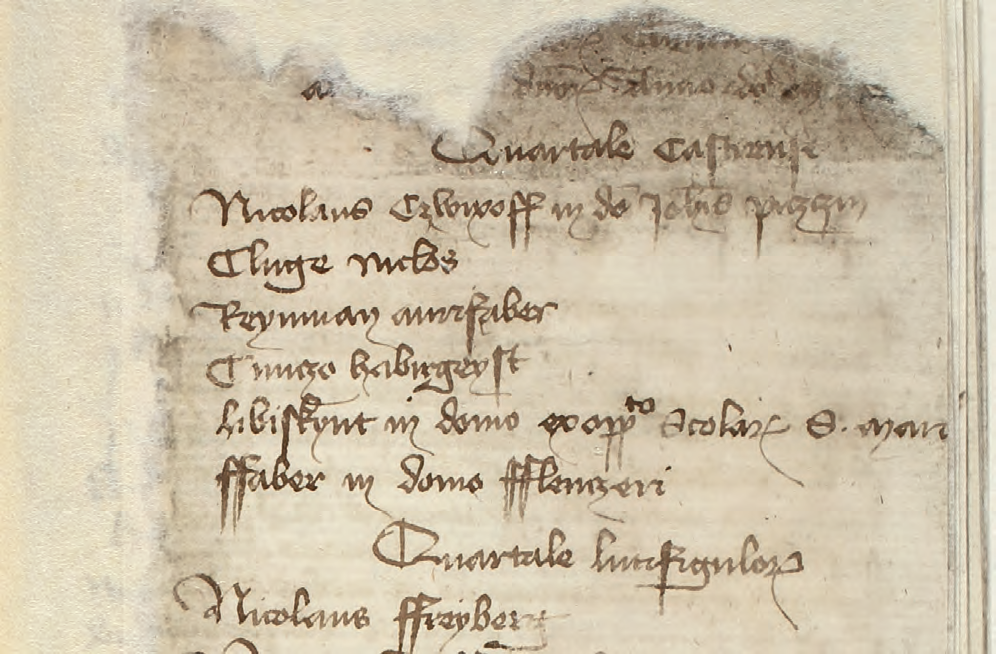 Anno
Quartale Castrense
Nicolaus in do Johis
Cluge Niclos
Reynman aurifaber
Cunczo habirgeyst
libiskynt in domo ex oppto Scolar S. mar
ffaber in domo fflenczeri
Quartale lutifigulor
Nicolaus ffreyberg